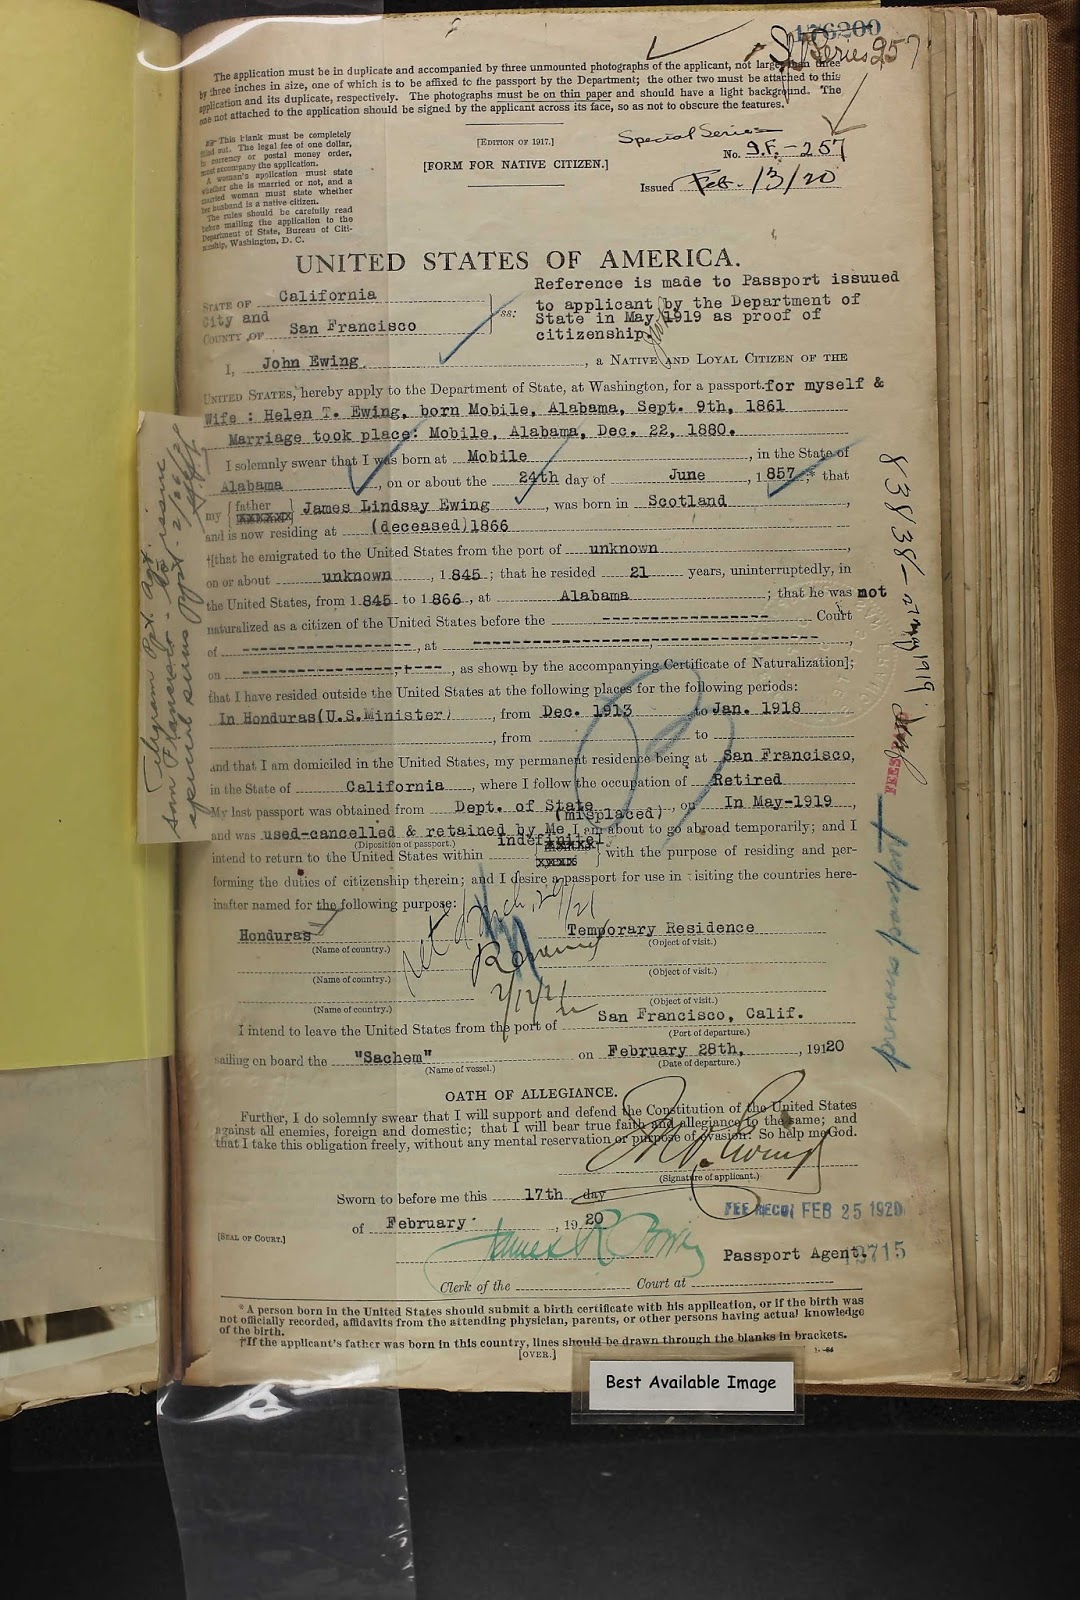 176200
Sp. Series 257
The application must be in duplicate and accompanied by three unmounted photographs of the applicant, not larger than three
by three inches in size, one of which is to be affixed to the passport by the Department; the other two must be attached to this
application and its duplicate, respectively. The photographs must be on thin paper and should have a light background. The
one not attached to the application should be signed by the applicant across its face, so as not to obscure the features.
This blank must be completely
filled out. The legal fee of one dollar,
in currency or postal money order,
must accompany the application.
A woman's application must state
whether she is married or not, and a
married woman must state whether
her husband is a native citizen.
The rules should be carefully read
before mailing the application to the
Department of State, Bureau of Citi-
zenship, Washington, D. C.
[EDITION OF 1917.]
[FORM FOR NATIVE CITIZEN.]
Special Series
No. S.F.-257
Issued Feb. 13/20
UNITED STATES OF AMERICA.
Reference is made to Passport issuued
to applicant by the Department of
State in May 1919 as proof of
citizenship.
STATE OF California
City and
COUNTY OF San Francisco
ss:
I, John Ewing, a NATIVE AND LOYAL CITIZEN OF THE
UNITED STATES, hereby apply to the Department of State, at Washington, for a passport for myself &
Wife : Helen T. Ewing, born Mobile, Alabama, Sept. 9th, 1861
Marriage took place: Mobile, Alabama, Dec. 22, 1880.
I solemnly swear that I was born at Mobile, in the State of
Alabama, on or about the 24th day of June, 1857;* that
my father xxxxxx James Lindsay Ewing, was born in Scotland,
and is now residing at (deceased)1866
†[that he emigrated to the United States from the port of unknown,
on or about unknown, 1845; that he resided 21 years, uninterruptedly, in
the United States, from 1845 to 1866, at Alabama; that he was not
naturalized as a citizen of the United States before the ------------------ Court
of ------------------, at ------------------------------------,
on ------------------, as shown by the accompanying Certificate of Naturalization];
that I have resided outside the United States at the following places for the following periods:
In Honduras(U.S.Minister), from Dec. 1913 to Jan. 1918
, from to
and that I am domiciled in the United States, my permanent residence being at San Francisco,
in the State of California, where I follow the occupation of Retired
My last passport was obtained from Dept. of State, on In May-1919,
(misplaced)
and was used-cancelled & retained by Me I am about to go abroad temporarily; and I
(Disposition of passport.)
intend to return to the United States within indefinitel xxxxxx xxxxx with the purpose of residing and per-
forming the duties of citizenship therein; and I desire a passport for use in visiting the countries here-
inafter named for the following purpose:
Honduras Temporary Residence
(Name of country.) (Object of visit.)
(Name of country.) (Object of visit.)
(Name of country.) (Object of visit.)
2/12/21
I intend to leave the United States from the port of San Francisco, Calif.
(Port of departure.)
sailing on board the "Sachem" on February 28th, , 19120
(Name of vessel.) (Date of departure.)
OATH OF ALLEGIANCE.
Further, I do solemnly swear that I will support and defend the Constitution of the United States
against all enemies, foreign and domestic; that I will bear true faith and allegiance to the same; and
that I take this obligation freely, without any mental reservation or purpose of evasion: So help me God.
Jno. Ewing
(Signature of applicant.)
Sworn to before me this 17th day
of February, 1920
FEE RECD. FEB 25 1920
[SEAL OF COURT.]
Passport Agent.
Clerk of the Court at
*A person born in the United States should submit a birth certificate with his application, or if the birth was
not officially recorded, affidavits from the attending physician, parents, or other persons having actual knowledge
of the birth.
†If the applicant's father was born in this country, lines should be drawn through the blanks in brackets.
[OVER.]
83838-27 May 1919
previous passport
Best Available Image